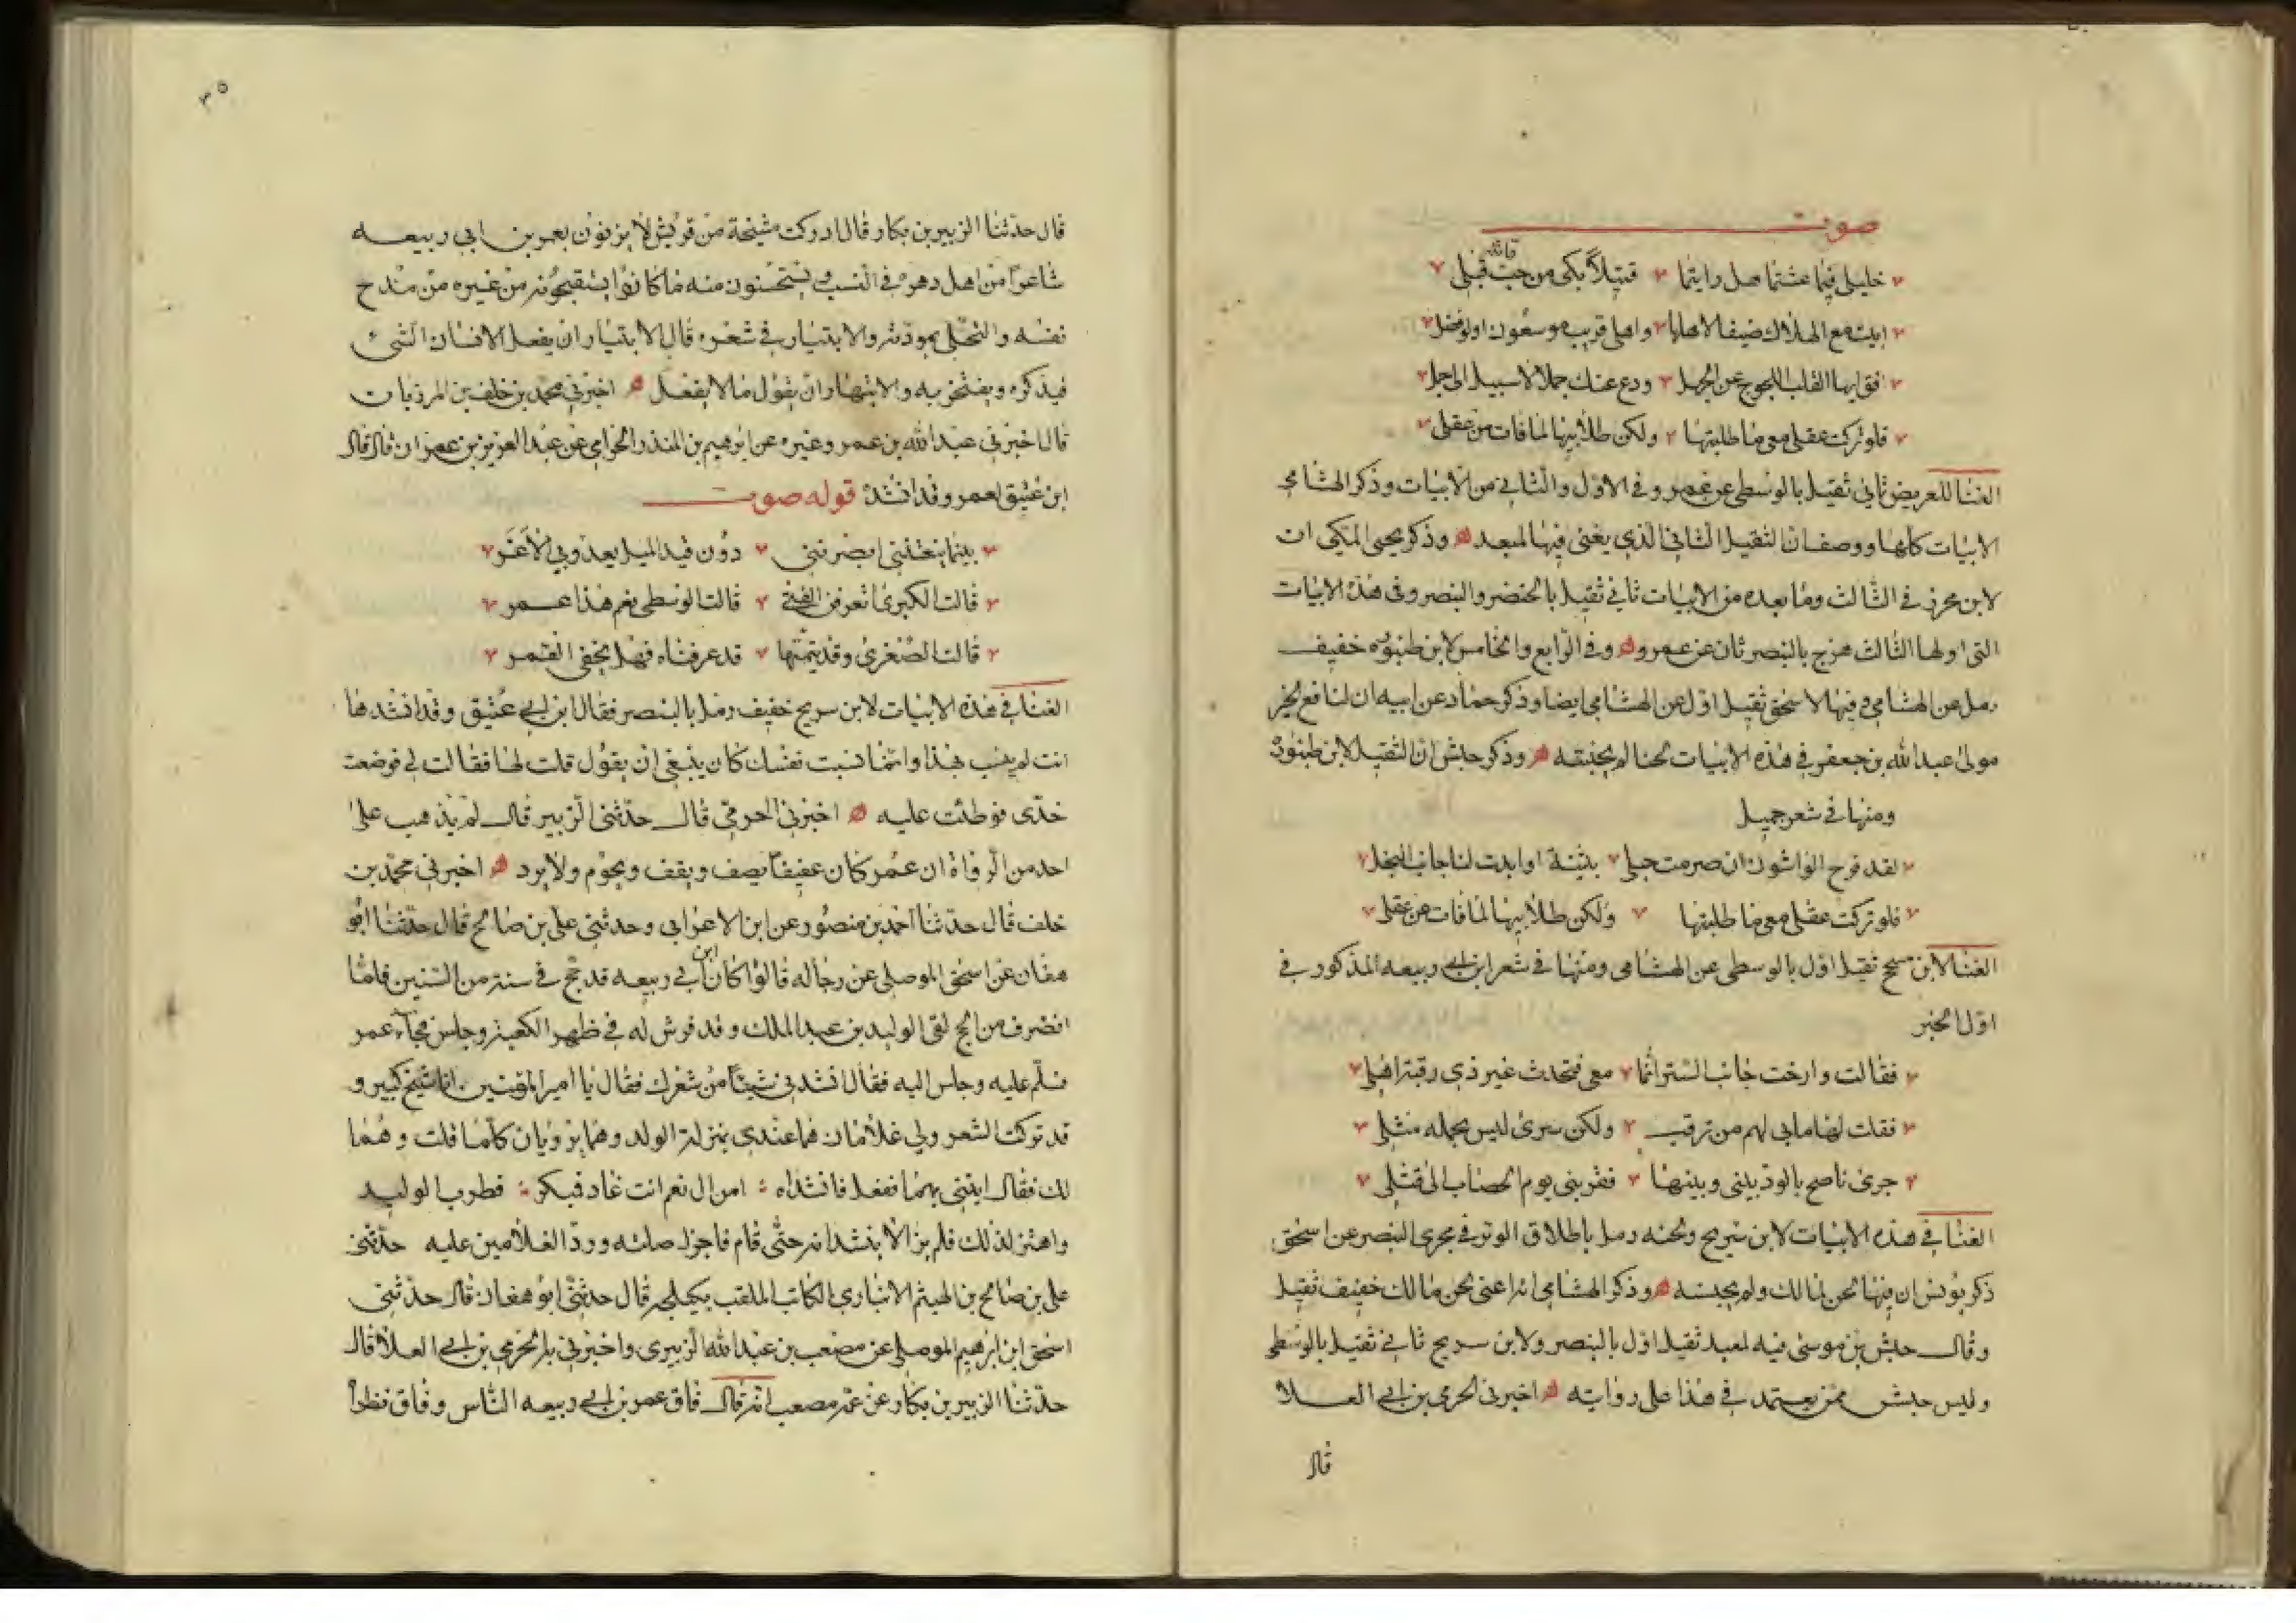 صوت
خليلي فيما عشتما هل رايتما قتيلاً بكى من حب قاتله قبلي
ابيت مع الهلاك ضيفا لاهلها واهلي قريب موسعون اولو فضل
افق ايها القلب اللجوج عن الجهل ودع عنك جملا لا سبيل الى جمل
فلو تركت عقلي معي ما طلبتها ولكن طلابيها لما فات من عقلي
الغنا للغريض ثاني ثقيل بالوسطى عن عمرو في الاول والثاني من الابيات وذكر الهشامي
الابيات كلها ووصف ان الثقيل الثاني الذي يغنى فيها لمعبد وذكر يحيى المكي ان
لابن محرز في الثالث وما بعده من الابيات ثاني ثقيل بالخنصر والبنصر وفي هذه الابيات
التي اولها الثالث هزج بالبنصر ثان عن عمرو وفي الرابع والخامس لابن طنبوره خفيف
رمل عن الهشامي وفيها لاسحق ثقيل اول عن الهشامي ايضا وذكر حماد عن ابيه ان لنافع الخير
مولى عبد الله بن جعفر في هذه الابيات لحنا لم يجنسه وذكر حبش ان الثقيل لابن طنبوره
ومنها في شعر جميل
لقد فرح الواشون ان صرمت حبلي بثينة او ابدت لنا جانب البخل
فلو تركت عقلي معي ما طلبتها ولكن طلابيها لما فات من عقلي
الغنا لابن مسجح ثقيل اول بالوسطى عن الهشامي ومنها في شعر ابن ابي ربيعه المذكور في
اول الخبر
فقالت وارخت جانب الستر انما معي فتحدث غير ذي رقبة اهلي
فقلت لها مابي لهم من ترقب ولكن سري ليس يحمله مثلي
جرى ناصح بالود بيني وبينها فقربني يوم الحصاب الى قتلي
الغنا في هذه الابيات لابن سريج ولحنه رمل باطلاق الوتر في مجرى البنصر عن اسحق
ذكر يونس ان فيها لحن لمالك ولم يجنسه وذكر الهشامي ان لحن مالك خفيف ثقيل
وقال حبش بن موسى فيه لمعبد ثقيل اول بالبنصر ولابن سريج ثاني ثقيل بالوسطى
وليس حبش ممن يعتمد في هذا على روايته اخبرني الحرمي بن ابي العلا
قال
٣٥
قال حدثنا الزبير بن بكار قال ادركت مشيخة من قريش لا يزنون بعمر بن ابي ربيعه
شاعرا من اهل دهره في النسب ويستحسنون منه ما كانوا يستقبحونه من غيره من مدح
نفسه والتحلي بمودته والابتيار في شعره قال الابتيار ان يفعل الانسان الشيء
فيذكره ويفتخر به والابتهار ان يقول ما لا يفعل اخبرني محمد بن خلف بن المرزبان
قال اخبرني عبد الله بن عمر وغيره عن ابرهيم بن المنذر الخزامي عن عبد العزيز بن عمران قال قال
ابن عتيق لعمر وقد انشده قوله صوت
بينما ينعتنني ابصرنني دون قيد الميل يعدو بي الاغر
قالت الكبرى اتعرفن الفتى قالت الوسطى نعم هذا عمر
قالت الصغرى وقد تيمتها قد عرفناه فهل يخفى القمر
الغنا في هذه الابيات لابن سريج خفيف رمل بالبنصر فقال ابن ابي عتيق وقد انشدها
انت لم ينسب بهذا وانما نسبت نفسك كان ينبغي ان يقول قلت لها فقالت لي فوضعت
خدى فوطئت عليه اخبرني الحرمي قال حدثني الزبير قال لم يذهب على
احد من الرواة ان عمر كان عفيفا يصف ويقف ويحوم ولا يرد اخبرني محمد بن
خلف قال حدثنا احمد بن منصور عن ابن الاعرابي وحدثني علي بن صالح قال حدثنا ابو
هفان عن اسحق الموصلي عن رجاله قالوا كان ابن ابي ربيعه قد حج في سنة من السنين فلما
انصرف من الحج لقى الوليد بن عبد الملك وقد فرش له في ظهر الكعبة وجلس فجآء عمر
فسلم عليه وجلس اليه فقال انشدني شيئا من شعرك فقال يا امير المؤمنين انا شيخ كبير و
قد تركت الشعر ولي غلامان هما عندي بمنزلة الولد وهما يرويان كلما قلت وهما
لك فقال ايتني بهما ففعل فانشداه امن ال نعم انت غاد فمبكر فطرب الوليد
واهتز لذلك فلم يزالا ينشدانه حتى قام فاجزل صلته وورد الغلامين عليه حدثني
علي بن صالح بن الهيثم الانباري الكاتب الملقب بكيلجه قال حدثني ابو هفان قال حدثني
اسحق ابن ابرهيم الموصلي عن مصعب بن عبد الله الزبيري واخبرني به الحرمي بن ابي العلا قال
حدثنا الزبير بن بكار عن عمه مصعب انه قال فاق عمر بن ابي ربيعه الناس وفاق نظرا